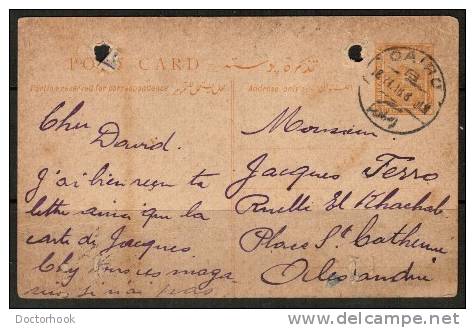 POST CARD تذكرة بوستة
Part reserved for correspondence
Address only
CAIRO
Cher
David.
J'ai bien reçu ta
lettre ainsi que la
carte de Jacques
maga-
Monsieur
Jacques Ferro
Ruelle El Khachab
Place St. Catherine
Alexandrie
Doctorhook
delcampe.net